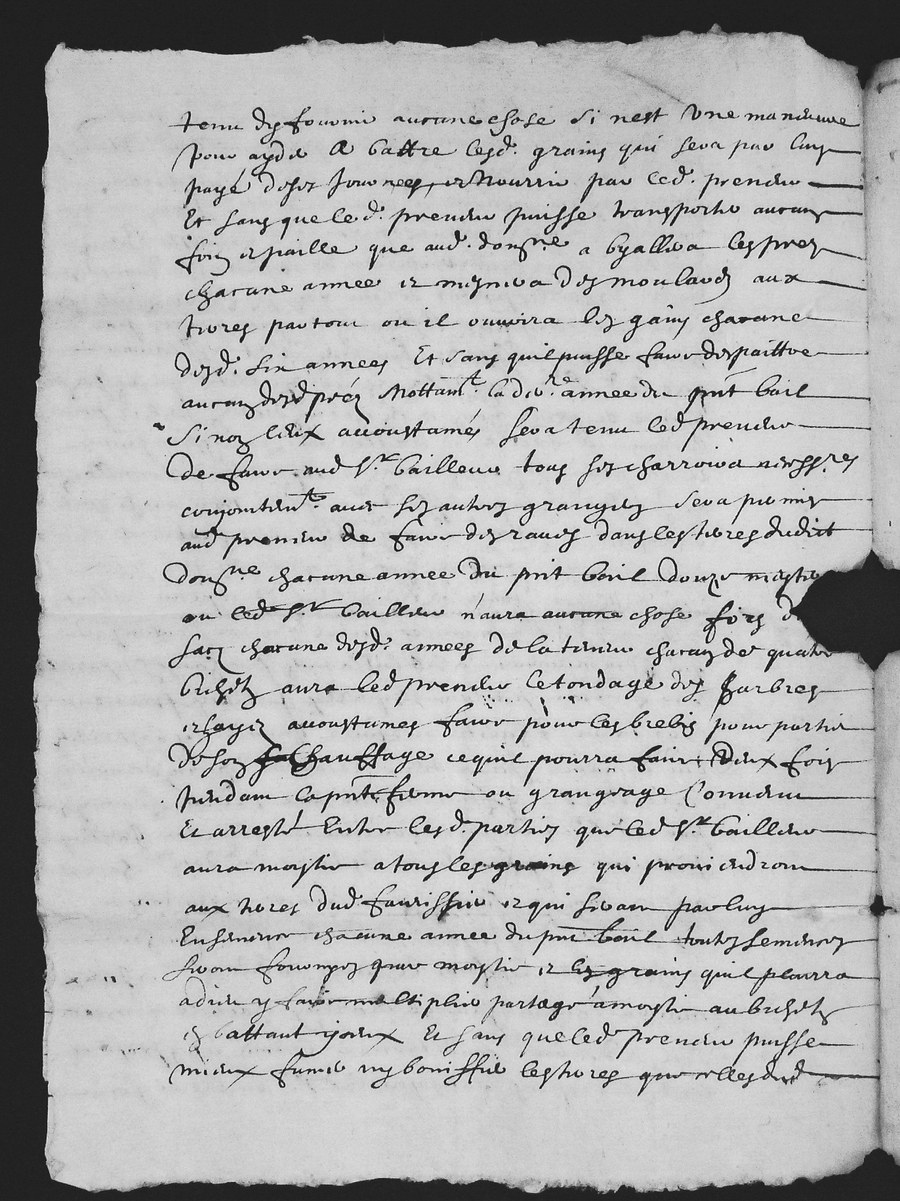 tenu dy fournir aucune chose si nest une maneuvre
pour ayder a battre lesd. grains qui sera par luy
payé de ses journees, et nourrie par led. preneur
Et sans que led. preneur puisse transporter aucun
foin et paille que aud. domne a byallera les prez
chacune année et menera des moulards aux
terres partout ou il ouvrira les gains chacune
desd. six années Et sans quil puisse faire despaittre
aucuns desd prez nottamt. la dre. année du pnt bail
Sinon lieux accoustumés sera tenu led preneur
de faire aud Sr. bailleur tous ses charrois necessres
conjointent. avec ses autres grangers sera permis
aud preneur de faire des raves dans les terres dudict
domne chacune année du pnt bail douze
ou led Sr bailleur n'aura aucune chose fors
sacz chacune desd. années de la teneur chacun de quatre
bichetz aura led preneur le tondage des arbres
et layes accoustumés faire pour les brebis pour partie
de son chauffage ce quil pourra faire deux fois
pendant la pnte ferme ou grangeage Convenu
Et arresté Entre lesd. parties que led Sr bailleur
aura moytie a tous les grains qui proviendront
aux terres dud et qui seront par luy
Ensemence chacune année du pnt bail toutes semences
seront fournyes par moytie et les grains quil plaira
a dieu y faire multiplier partagé a moytie au bichetz
en battant iceux Et sans que led preneur puisse
mieux fumer ny boniffier les terres que celles dud